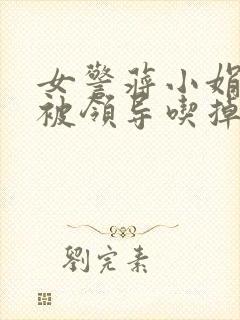 女警蒋小娟
被领导喫掉
劉完素